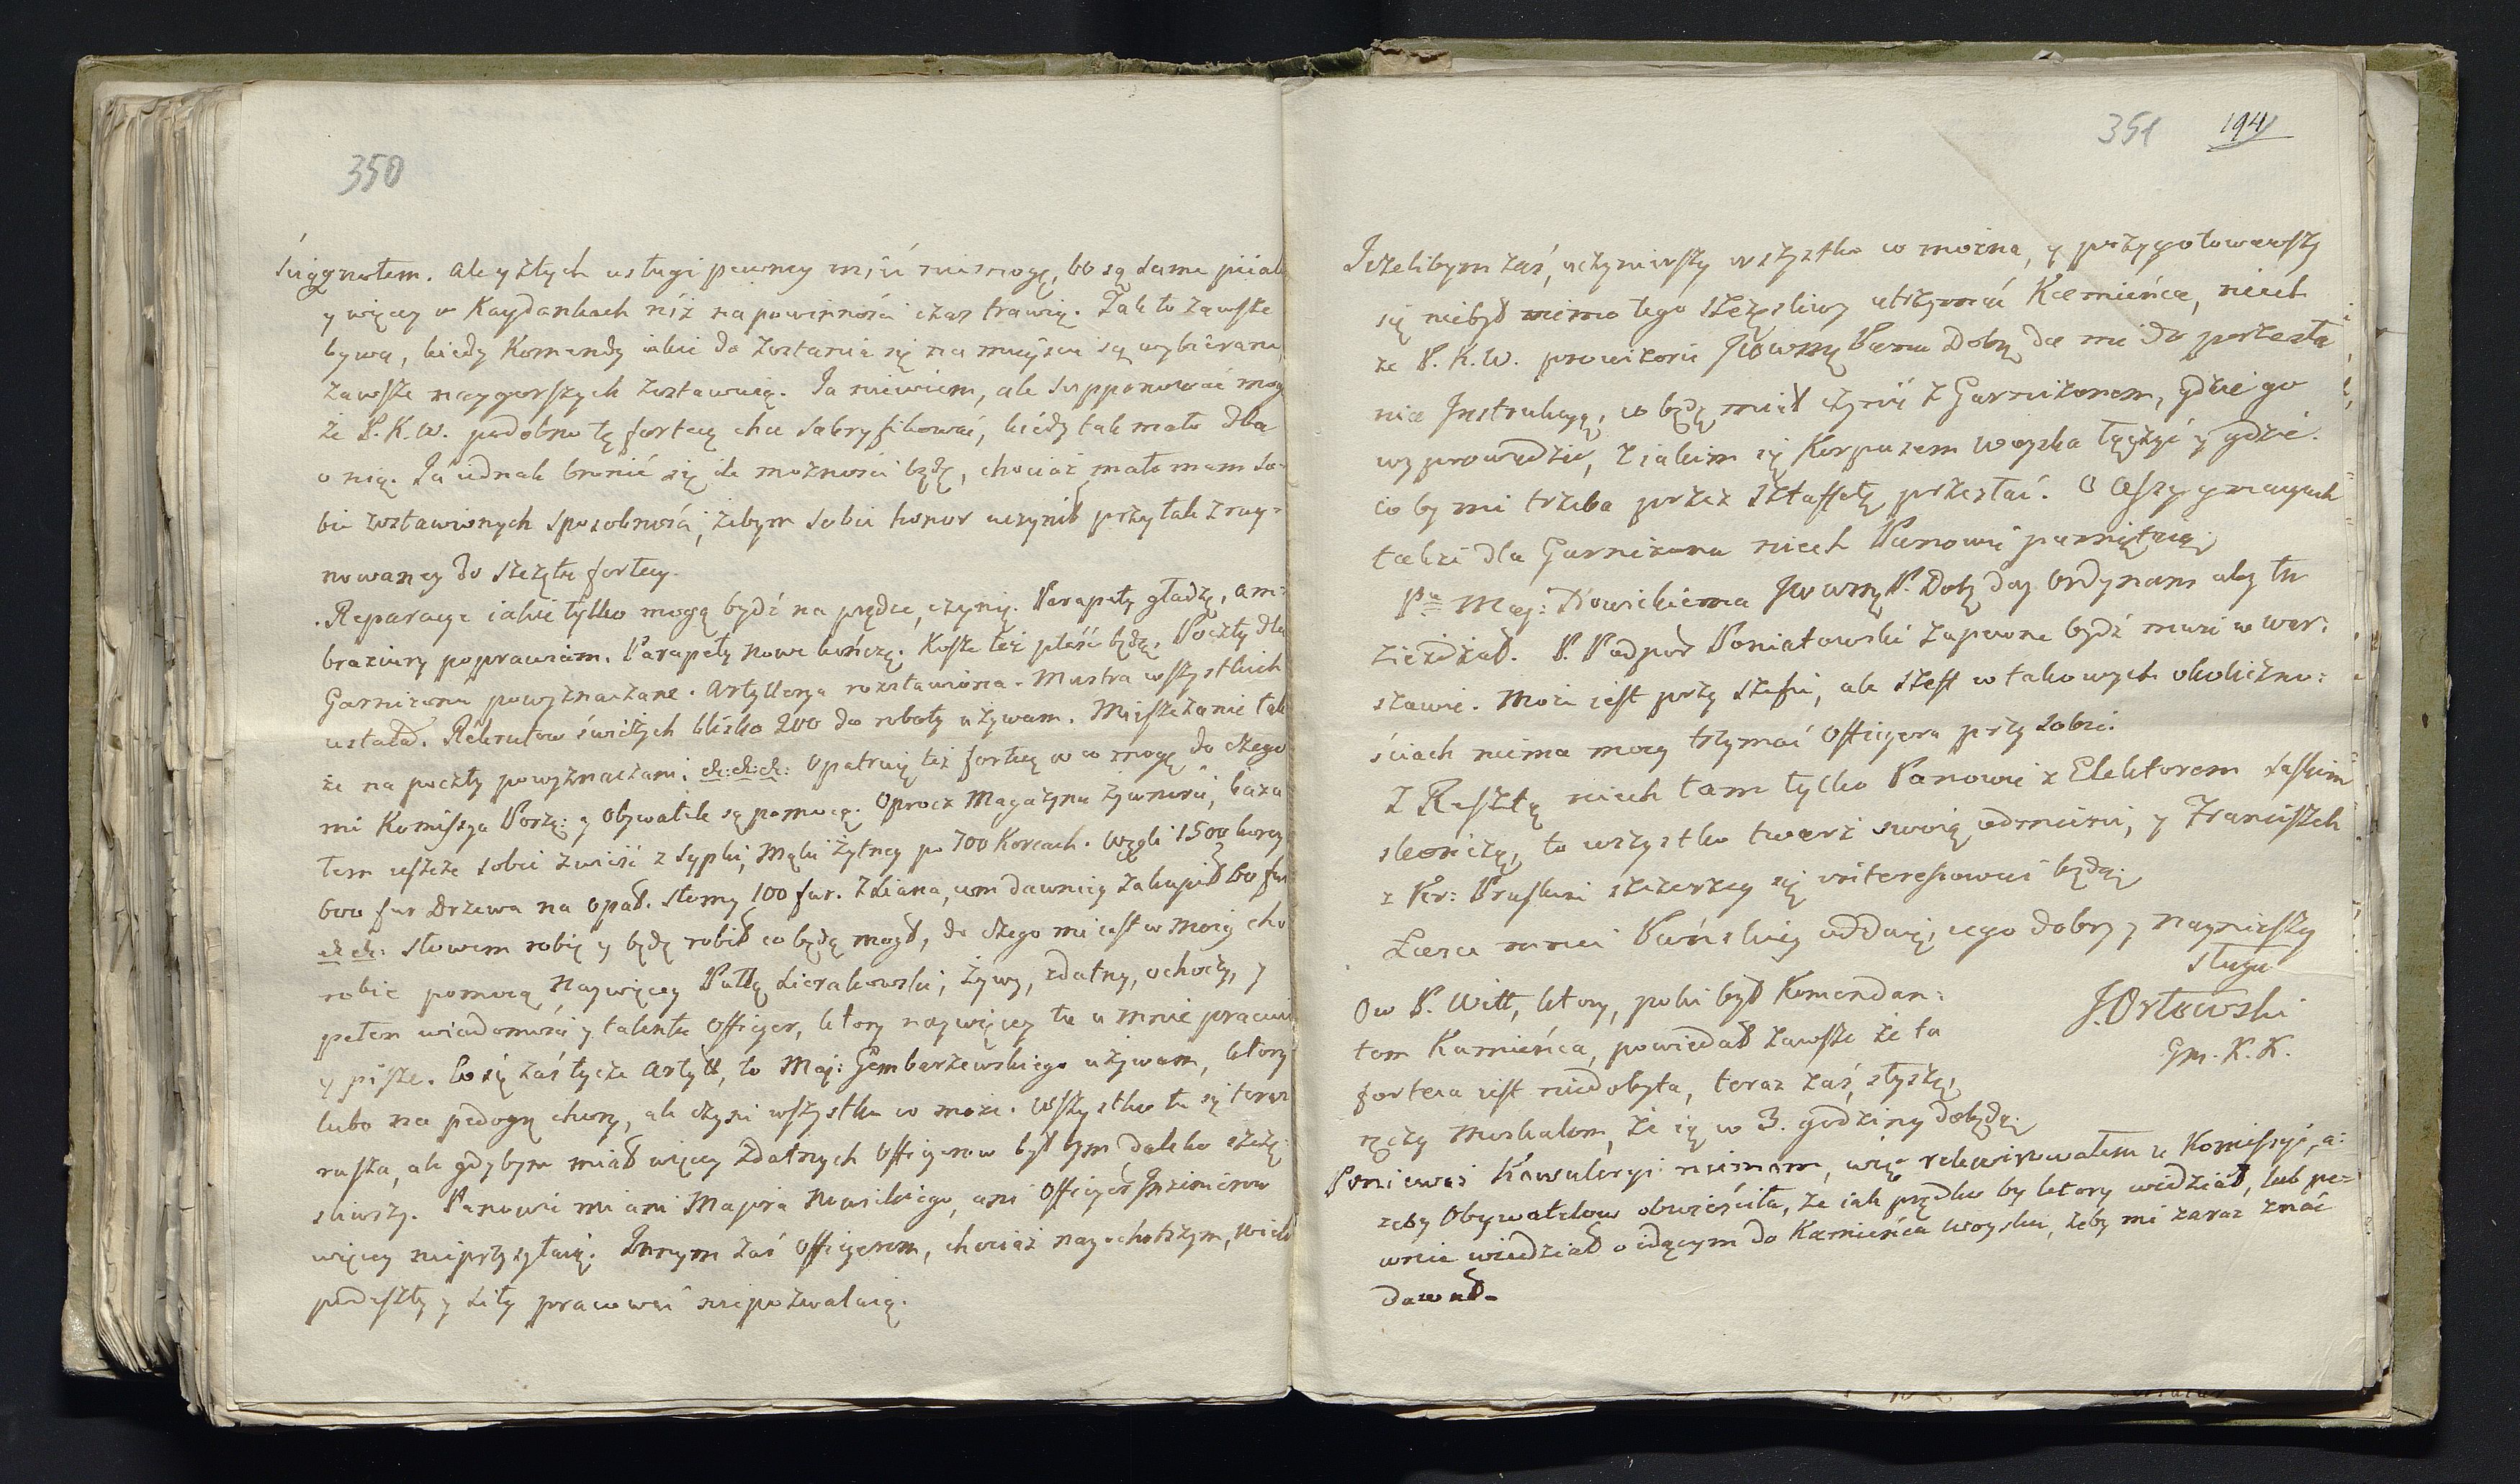 350
ściągnołem. ale y z tych usługi pewney mieć nie mogę, bo są sama piiaty
y więcey w Kaydankach niż na powinności czas trawią. Tak to zawsze
bywa, kiedy Komendy iakie do zostania się na mieyscu są wybierane
zawsze naygorszych zostawuią. Ja niewiem, ale supponować mogę
że P. K. W. podobno tę fortecę chce sakryfikować, kiedy tak mało dba
o nię. Ja iednak bronić się ile możności będę, chociaż mało mam so-
bie zostawionych sposobności, żebym sobie honor uczynił przy tak zruy-
nowaney do szczętu fortecy.
Reparacye iakie tylko mogą bydź na prędce, czynię. Parapety gładzę, am-
brazury poprawiam. Parapety nowe kończę. Kosze też pleść będę. Poczty dla
Garnizonu powyznaczane. Artyllerya rozstawiona. Mustra wszystkich
ustała. Rekrutow świeżych blisko 200 do roboty używam. Mieszczanie tak
że na poczty powyznaczani. &: &: &: Opatruię też fortecę w co mogę do czego
mi Komissya Porzą: y Obywatele są pomocą. Oprocz Magazynu żywności, kaza
łem ieszcze sobie zwieść z sypki, Mąki Żytney po 700 Korcach. Węgli 1500 korcy
600 fur Drzewa na opał. Słomy 100 fur. Z siana, com dawniey zakupił 60 fur
& &: Słowem robię y będę robił co będę mogł, do czego mi iest w moiey cho
robie pomocą naywięcey Pułk: Sierakowski, żywy, zdatny, ochoczy, y
pełen wiadomości y talentu Officyer, ktory naywięcey tu u mnie pracuie
y pisze. Co się zaś tycze Artyll, to Maj: Gembarzewskiego używam, ktory
lubo na podogrę chory, ale czyni wszystko co może. Wszystko tu się teraz
rusza, ale gdybym miał więcey zdatnych Officyerow był bym daleko szczę-
śliwszy. Panowie mi ani Majora Nowickiego, ani Officyer Inzinierow
więcey nieprzysyłaią. Innym zaś Officyerom, chociaż nayochotszym, wiek
podeszły y siły pracować nie pozwalaią.
351 194
Jeżelibym zaś, uczyniwszy wszystko co można, y przygotowawszy
się niebył mimo tego szczęśliwy utrzymać Kamieńca, niech
że P. K. W. prowizorie JWWmę Pana Dobę da mi do przesła
nia Instrukcyą, co będę miał czynić z Garnizonem, gdzie go
wyprowadzić, z iakim się Korpusem woyska łączyć y gdzie.
co by mi trzeba przez sztaffetę przesłać. O assygnacyach
także dla Garnizonu niech Panowie pamiętaią.
Pu Maj: Nowickiemu JWWmę P. Dobę day Ordynans aby tu
ziezdżał. P. Podpuł Poniatowski zapewne bydź musi w War:
szawie. Może iest przy Szefie, ale Szef w takowych okoliczno:
ściach nie ma mocy trzymać Officyera przy sobie.
Z Resztą niech tam tylko Panowie z Elektorem Saskim
skończą, to wszystko twarz swoią odmieni, y Franciszek
z Kr: Pruskim szczerzey się interesować będą.
Łasce mnie Pańskiey oddaię, iego dobry y nayniższy
sługa
J. Orłowski
Gm. K. K.
Ow P. Witt, ktory, poki był Komendan:
tem Kamieńca, powiedał zawsze że ta
forteca iest niedobyta, teraz zaś, słyszę,
ręczy Moskalom, że ią w 3. godziny dobędą.
Ponieważ Kawaleryi niemam, więc rekwirowałem u Komissyi, a:
żeby Obywatelow obwieściła, że iak prędko by ktory widział, lub pe=
wnie wiedział o idącym do Kamieńca woysku, żeby mi zaraz znać
dawał.